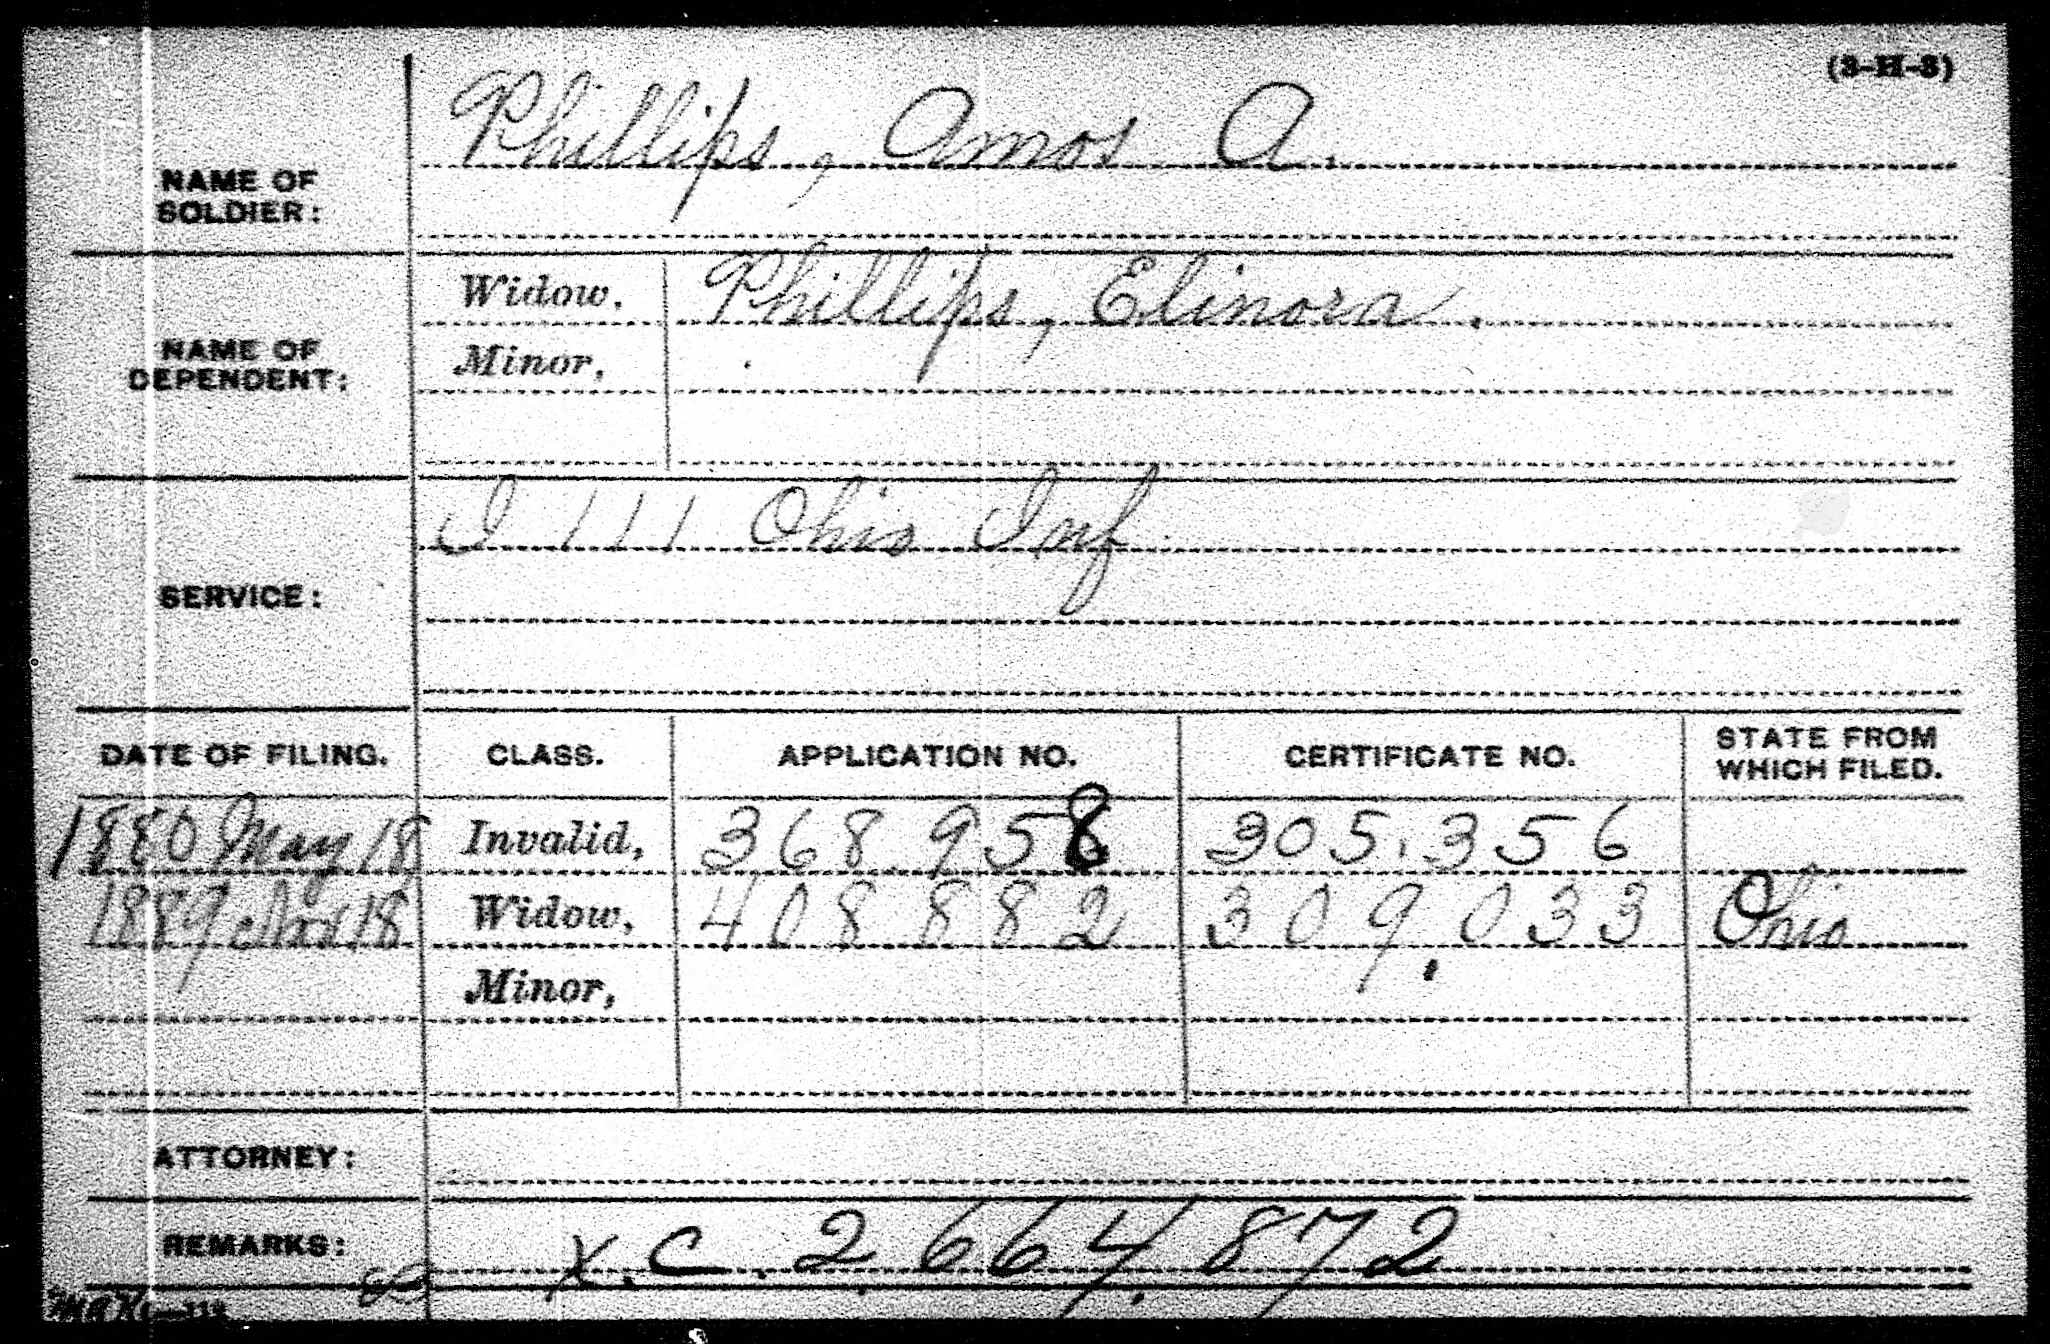 (3-H-3)
Phillips, Amos A.
NAME OF
SOLDIER:
Widow, Phillips, Elinora.
Minor,
NAME OF
DEPENDENT:
I 111 Ohio Inf
SERVICE:
DATE OF FILING. CLASS. APPLICATION NO. CERTIFICATE NO. STATE FROM WHICH FILED.
1880 May 18 Invalid, 368.958 305.356
1889 Nov 18 Widow, 408 882 309.033 Ohio
Minor,
ATTORNEY:
REMARKS: X.C. 2,664,872